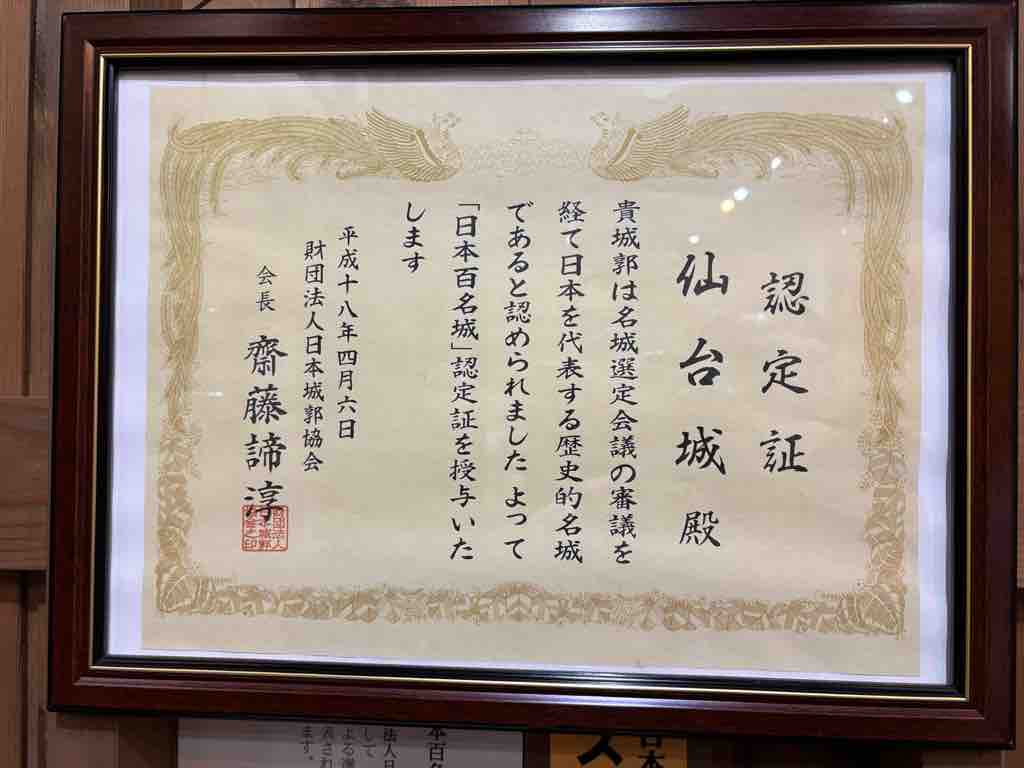 認定証
仙台城殿
貴城郭は名城選定会議の審議を
経て日本を代表する歴史的名城
であると認められました よって
「日本百名城」認定証を授与いた
します
平成十八年四月六日
財団法人日本城郭協会
会長 齋藤諦淳
日本
ス
本百
法人日
して
よる選
表され
ます。